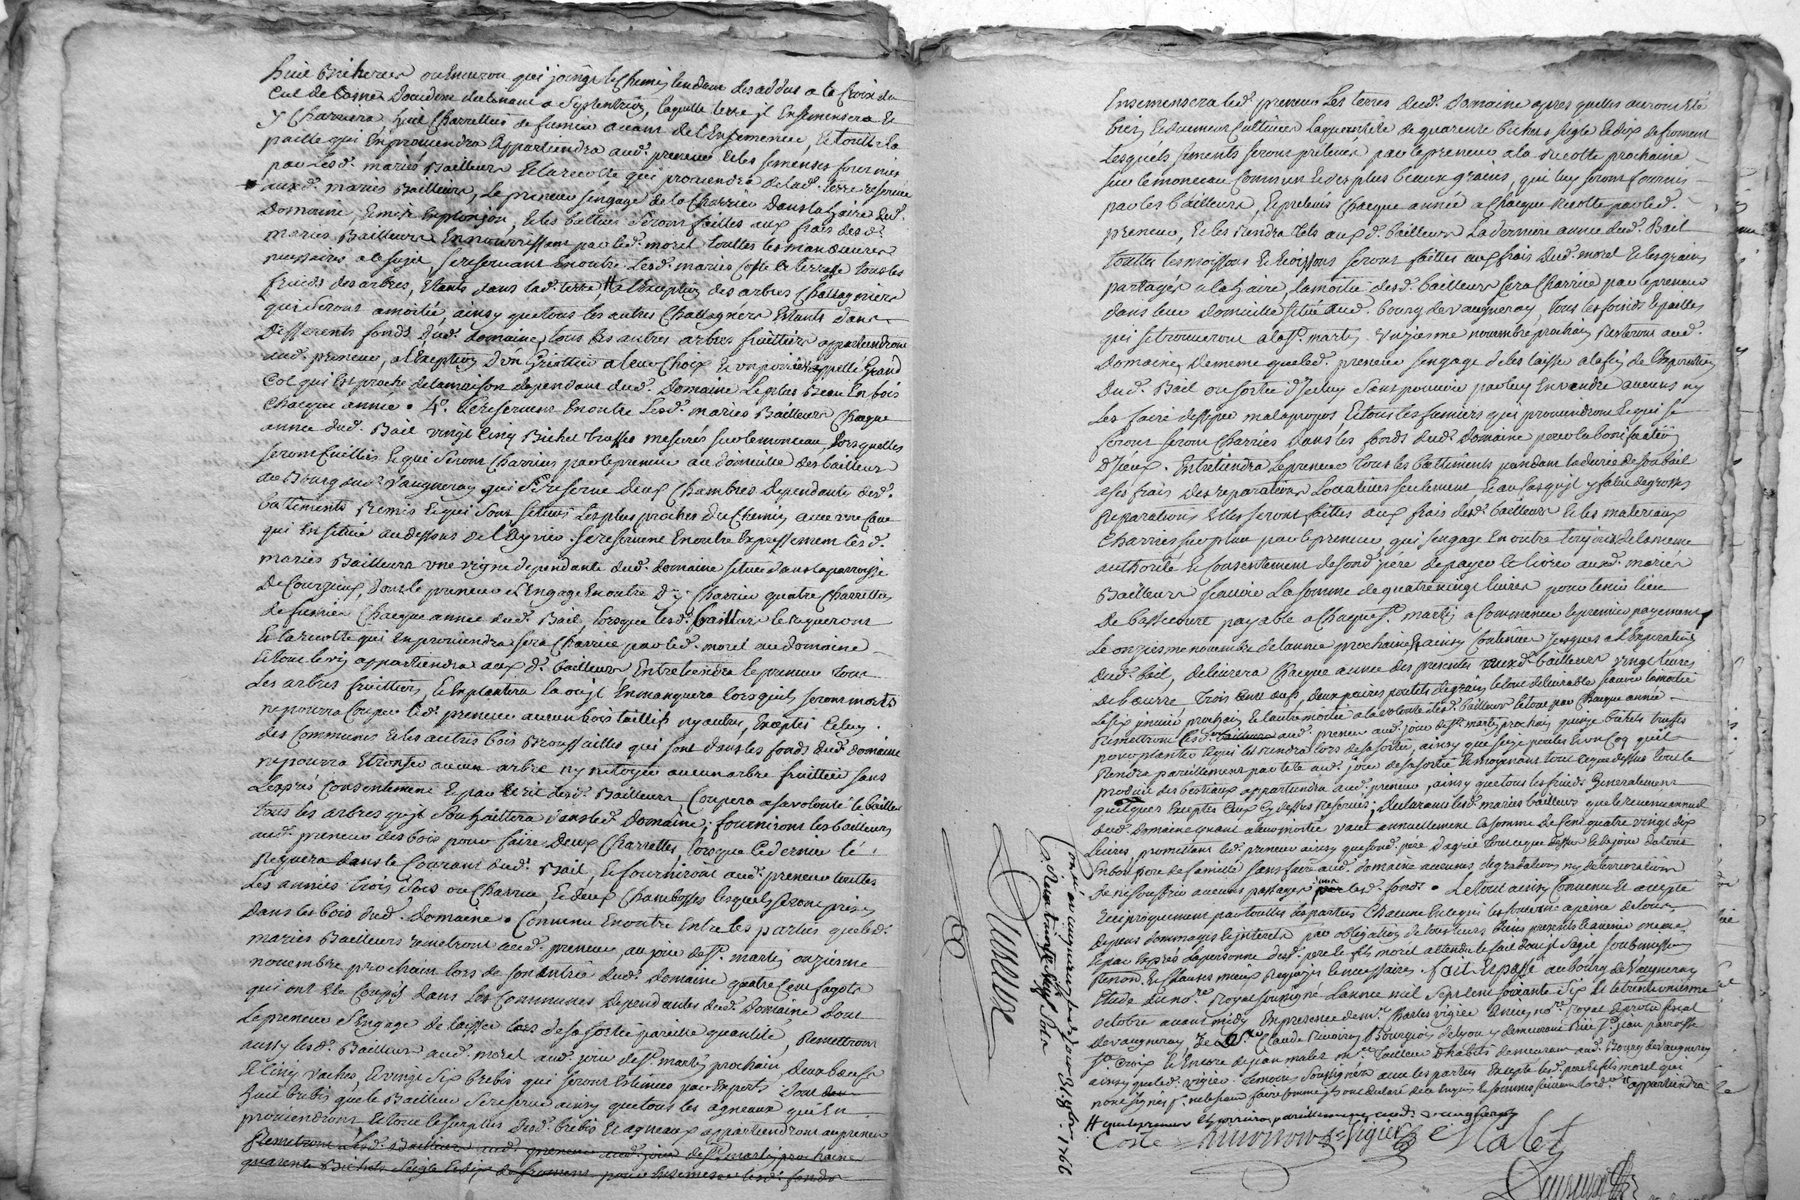 huit bicherées ou environ qui joingt le chemin tendant des addus a la Croix du
Col de Cosne du costé du levant a Septentrion, laquelle terre il ensemensera et
y charriera huit charrettées de fumier avant de l'ensemencer, et toutte la
paille qui en proviendra appartiendra aud. preneur et les semenses fournies
par lesd. mariés Bailleurs et la recolte qui proviendra de lad. terre reservée
auxd. mariés Bailleurs, le preneur s'engage de la charrier dans la haire dud.
Domaine, et mise en plonjon, et les battues seront faittes aux frais desd.
mariés Bailleurs en nourrissant par led. morel touttes les manœuvres
necessaires a ce sujet, se reservant en outre lesd. mariés Coste et terrasse tous les
fruits des arbres, etants dans lad. terre, a l'exception des arbres chattagniers
qui seront a moitié, ainsy que tous les autres chattagniers etants dans
differents fonds dud. domaine, tous les autres arbres fruittiers appartiendront
aud. preneur, a l'exception d'un Griottier a leur choix et un poirier appellé Grand
Col qui est proche de la maison dependant dud. Domaine le plus beau en bois
chacque année. 4°. se reservent en outre lesd. mariés Bailleurs chacque
année dud. Bail vingt cinq Bichet truffes mesurés sur le monceau, lorsqu'elles
seront cuillies et qui seront charriées par le preneur au domicille des bailleurs
au Bourg dud. Vaugneray qui se reserve deux chambres dependante desd.
battiments remis et qui sont situés les plus proches du chemin avec une cave
qui est située au dessous de l'éqyrier. se reservent en outre expressement lesd.
mariés Bailleurs une vigne dependante dud. domaine située dans la parroisse
de Courzieux, dont le preneur s'engage en outre d'y charrier quatre charrettées
de fumier chacque année dud. Bail, lorsque lesd. bailleurs le requeront
et la recolte qui en proviendra sera charriée par led. morel aud. domaine
et tout le vin appartiendra aux d. bailleurs, Entretiendra le preneur tous
les arbres fruittiers, et en plantera la ou il en manquera lorsqu'ils seront morts
ne pourra couper led. preneur aucun bois taillif ny autre, exceptés celuy
des communes et les autres bois Broussailles qui sont dans les fonds dud. domaine
ne pourra etronser aucun arbre ny netoyer aucun arbre fruittier sans
l'exprès consentement et par ecrit desd. Bailleurs, Coupera a sa volonté le bailleur
tous les arbres qu'il souhaittera dans led. domaine; fourniront les bailleurs
aud. preneur des bois pour faire deux charrettes, lorsque ce dernier le
requera dans le courant dud. Bail, et fourniront aud. preneur touttes
les années trois socs ou charrue, et deux chambosses lesquels seront pris
dans les bois dud. domaine. Convenu en outre entre les parties que led.
mariés Bailleurs remetront aud. preneur, au jour de St. martin onzieme
novembre prochain lors de son entrée dud. domaine quatre cens fagots
qui ont eté coupés dans les communes dependantes dud. domaine dont
le preneur s'engage de laisser lors de sa sortie pareille quantité, Remettront
aussy lesd. Bailleurs aud. morel aud. jour de St. martin prochain, deux bœufs
et cinq vaches, et vingt six brebis qui seront estimés par experts dont
huit brebis que le Bailleur se reserve ainsy que tous les agneaux qui en
proviendront et tout le surplus desd. brebis et agneaux appartiendront au preneur
Remetront lesd. Bailleurs aud. preneur aud. jour de St. marty prochain
quarante Bichets seigle et dix de froment pour ensemencer lesd. fonds
Ensemensera led. preneur les terres dud. domaine apres quelles auront eté
bien et duement cultivées la quantité de quarente bichets seigle et dix de froment
lesquels sements seront prelevés par le preneur a la recolte prochaine
sur le monceau commun et des plus beaux grains, qui luy seront fournis
par les bailleurs, et prelevés chacque année a chacque recolte par led.
preneur, et les rendra tels auxd. bailleurs la derniere année dud. Bail
touttes les moissons et moissons seront faittes aux frais dud. morel et les grains
partagés a la haire, la moitié desd. bailleurs sera charriée par le preneur
dans leur domicille situé aud. bourg de vaugneray, tous les foins et pailles
qui se trouveront a la St. martin onziesme novembre prochain resteront aud.
domaine, de meme que led. preneur s'engage de les laisser a la fin de l'expiration
dud. Bail ou sortie d'iceluy sans pouvoir par luy en vendre aucuns ny
les faire deffique mal a propos et tous les fumiers qui proviendront et qui se
feront seront charriés dans les fonds dud. domaine pour la bonifacation
d'iceux. Entretiendra le preneur tous les battiments pendant la durée de son bail
a ses frais des reparations locatives seulement, et au cas qu'il y falut de grosses
reparations elles seront faittes aux frais desd. bailleurs et les materiaux
charriés sur place par le preneur, qui s'engage en outre toujours de la meme
authorité et consentement de sond. père de payer et livrer auxd. mariés
Bailleurs scavoir la somme de quatre vingt livres pour tenir lieu
de bassecourt payable a chacque St. martin a commencer le premier payement
le onziesme novembre de l'année prochaine et ainsy continuer jusques a l'expiration
dud. bail, delivrera chacque année des presentes auxd. bailleurs vingt livres
de beurre, trois cent œufs, deux paires poulets de grain, le tout delivrable scavoir la moitié
le six janvier prochain et l'autre moitié a la volonté desd. bailleurs et tout par chacque année
Remettront lesd. bailleurs aud. preneur au jour de St. martin prochain quinze bichets truffes
pour planter et qui les rendra lors de sa sortie, ainsy que seize poules et un coq qu'il
rendra pareillement par tete aud. jour de sa sortie et moyenant tout ce que dessus tout le
produit des bestiaux appartiendra aud. preneur, ainsy que tous les fruits generalement
quelques exeptés ceux cy dessus reservés, declarant lesd. mariés bailleurs que le revenu annuel
dud. domaine quant a leur moitié vaut annuellement la somme de cent quatre vingt dix
livres promettant led. preneur ainsy que sond. pere d'agreer tout ce que dessus et de jouir du tout
en bon pere de famille sans faire aud. domaine aucunes degradations ny deterioration
de ne souffrir aucuns passages sur lesd. fonds. Le tout ainsy convenu et accepté
reciproquement par touttes les parties chacune en ce qui les concerne a peine de tous
depens dommages et interets par obligation de tous leurs biens presents et avenir meme
et par exprés la personne desd. pere et fils morel attendu le fait dont il s'agit soubmission
renon. et clauses mieux requises et necessaires. fait et passé au bourg de Vaugneray
Etude du nore. Royal soussigné L'année mil sept cent soixante six et le trente unieme
octobre avant midy en presence de mre. Charles vigier ancien nore. royal et procur. fiscal
de vaugneray et de Sr. Claude Simonon Bourgeois de Lyon y demeurant rue St. jean parroisse
Ste. Croix et encore de jean malet me. tailleur d'habits demeurant aud. Bourg de Vaugneray
ainsy que led. vigier temoins soussignés avec les parties excepté lesd. pere et fils morel qui
n'ont signés p. ne le scavoir faire comme ils ont declaré de ce enquis et sommés suivant l'ord.
# que le preneur charriera pareillement aud. vaugneray appartiendra
Coste Simonon Vigier Malet
Duvieux
Controlé au cinquante deux du 31 8bre. 1766
Duvieux